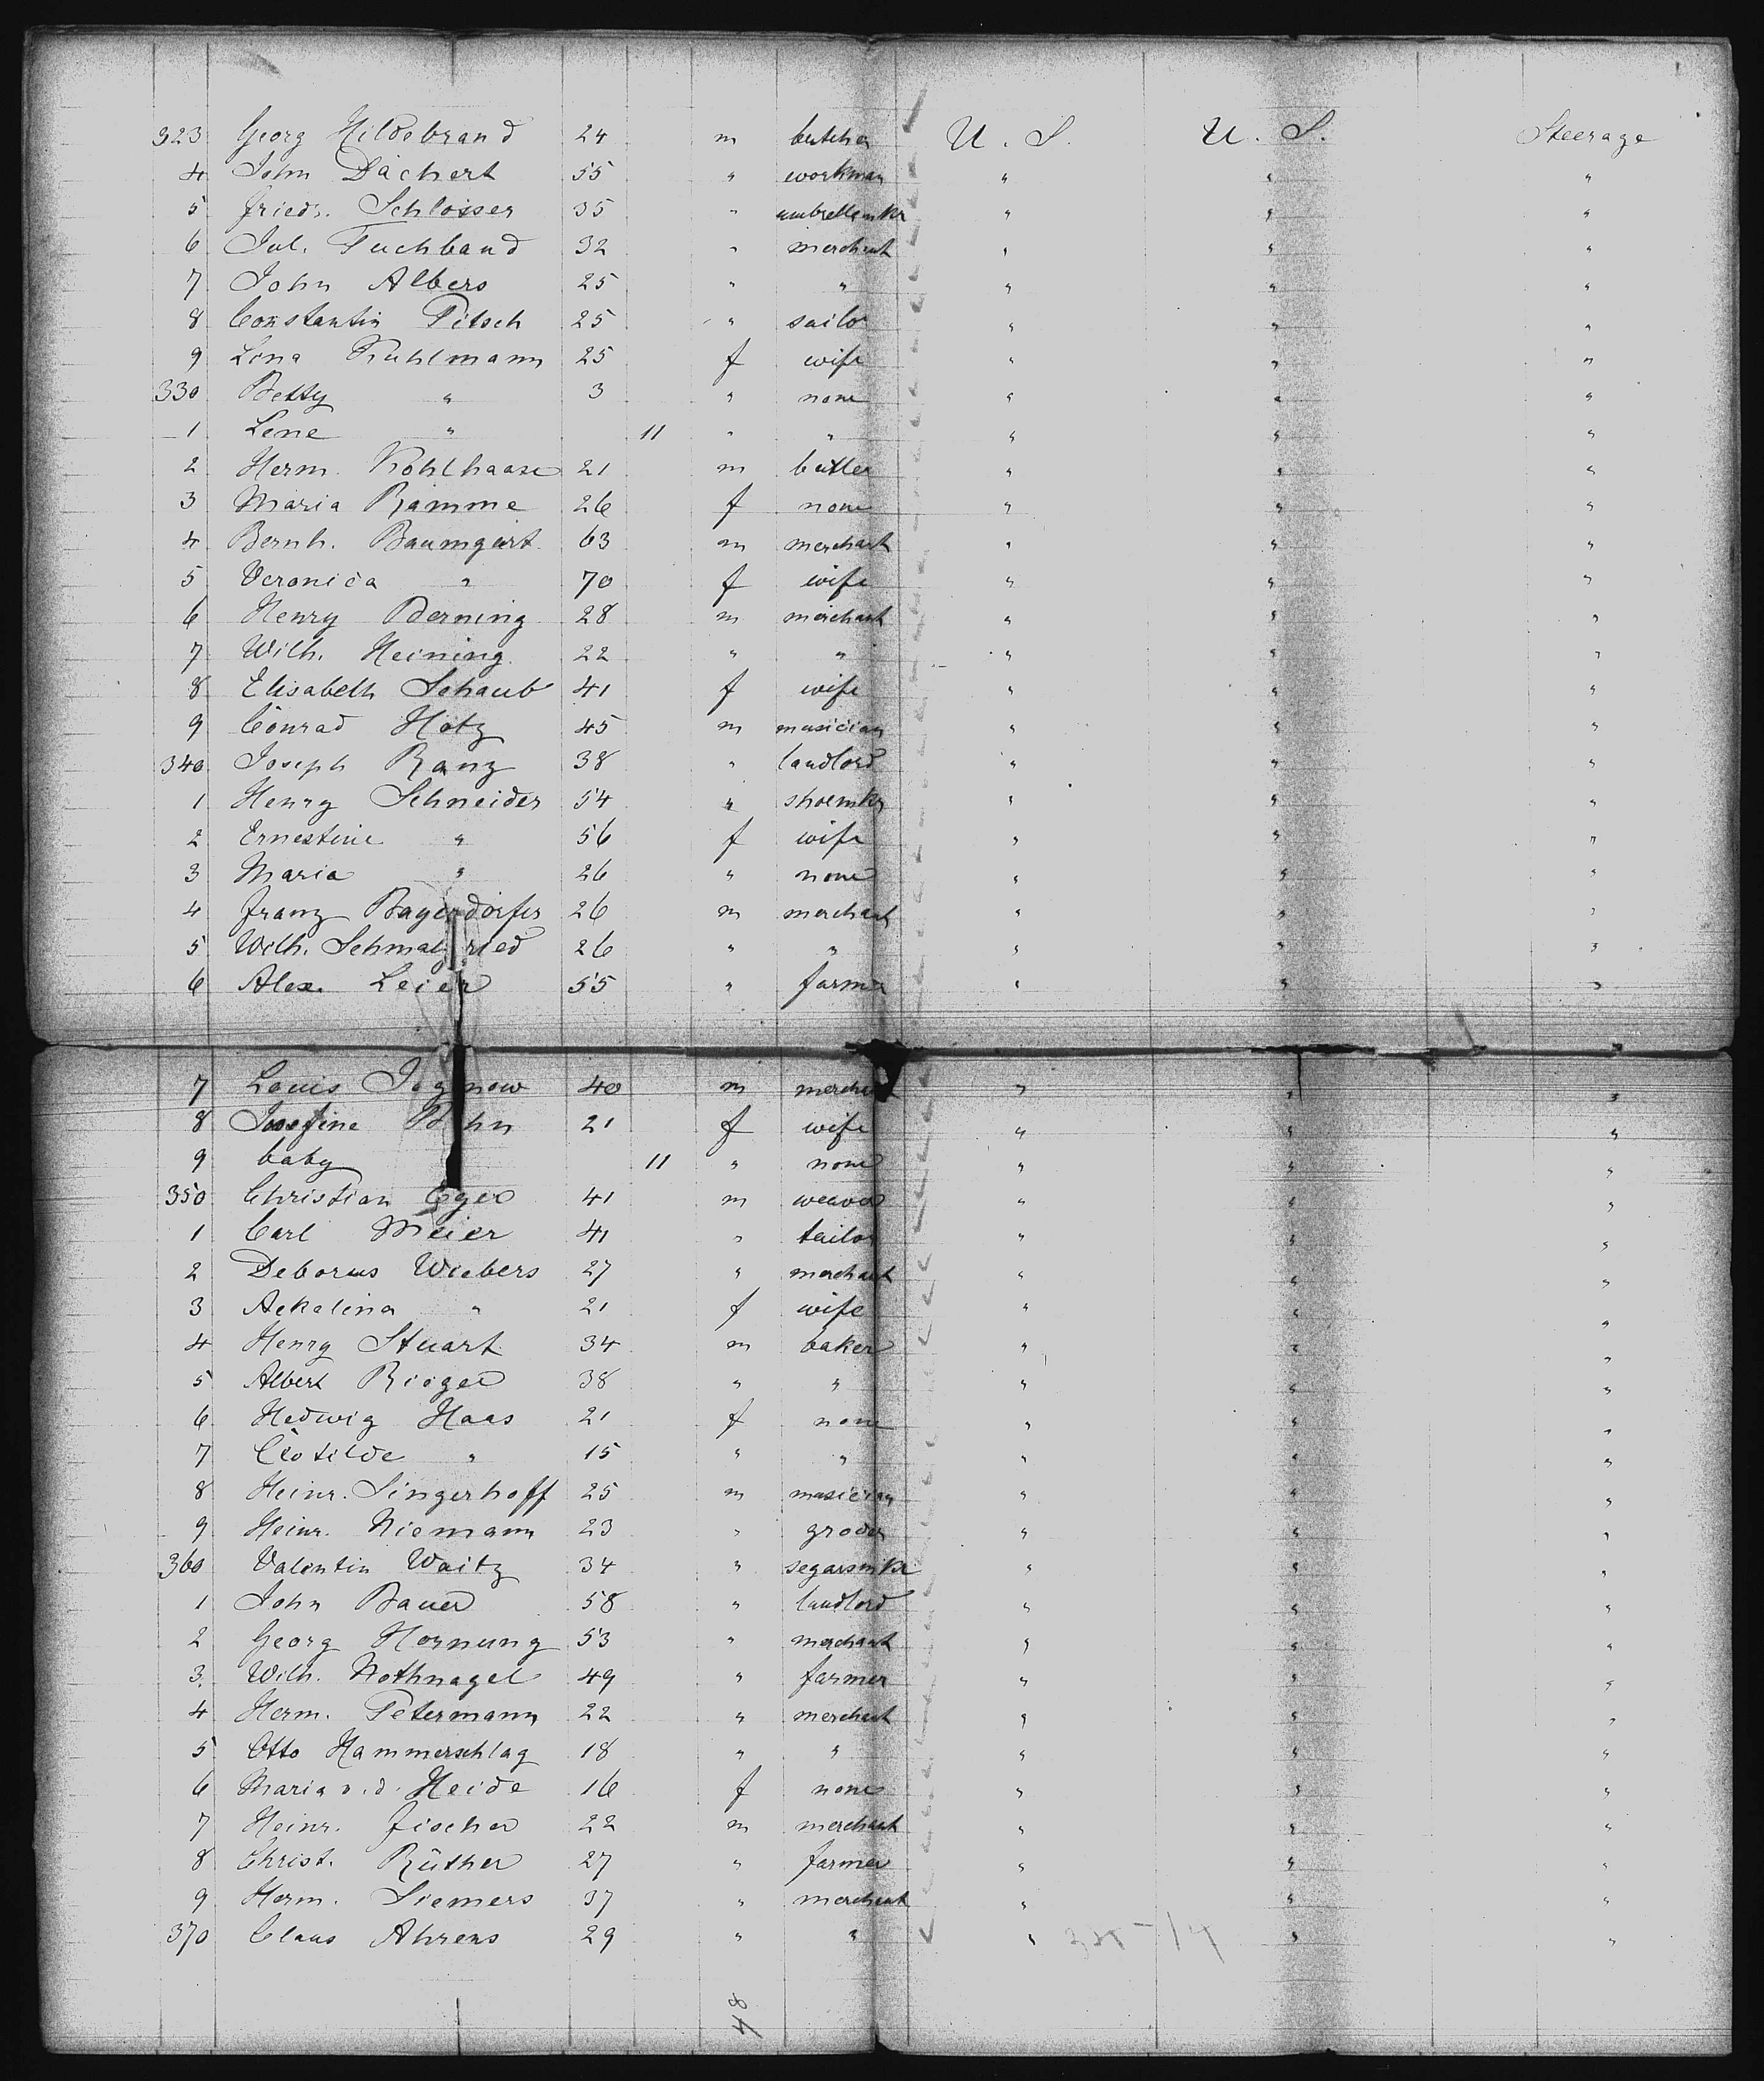 323 Georg Hildebrand 24 m butcher U. S. U. S. Steerage
4 John Dächert 55 " workman " " "
5 Friedr. Schlosser 35 " umbrellamkr " " "
6 Jul. Fuchband 32 " merchant " " "
7 John Albers 25 " " " " "
8 Constantin Pitsch 25 " sailor " " "
9 Lina Kuhlmann 25 f wife " " "
330 Betty " 3 " none " " "
1 Lene " 11 " " " " "
2 Herm. Kohlhaase 21 m butler " " "
3 Maria Ramme 26 f none " " "
4 Bernh. Baumgart 63 m merchant " " "
5 Veronica " 70 f wife " " "
6 Henry Berning 28 m merchant " " "
7 Wilh. Heining 22 " " " " "
8 Elisabeth Schaub 41 f wife " " "
9 Conrad Hotz 45 m musician " " "
340 Joseph Ranz 38 " landlord " " "
1 Henry Schneider 54 " shoemkr " " "
2 Ernestine " 56 f wife " " "
3 Maria " 26 " none " " "
4 Franz Bayerdorfer 26 m merchant " " "
5 Wilh. Schmalfried 26 " " " " "
6 Alex. Leier 55 " farmer " " "
7 Louis 40 m merchant " " "
8 Josefine 21 f wife " " "
9 baby 11 " none " " "
350 Christian Eger 41 m weaver " " "
1 Carl Meier 41 " tailor " " "
2 Deborus Wiebers 27 " merchant " " "
3 Ackalina " 21 f wife " " "
4 Henry Stuart 34 m baker " " "
5 Albert Rieger 38 " " " " "
6 Hedwig Haas 21 f none " " "
7 Clotilde " 15 " " " " "
8 Heinr. Singerhoff 25 m musician " " "
9 Heinr. Niemann 23 " grocer " " "
360 Valentin Waitz 34 " segarsmkr " " "
1 John Bauer 58 " landlord " " "
2 Georg Hornung 53 " merchant " " "
3 Wilh. Nothnagel 49 " farmer " " "
4 Herm. Petermann 22 " merchant " " "
5 Otto Hammerschlag 18 " " " " "
6 Maria v. d. Heide 16 f none " " "
7 Heinr. Fischer 22 m merchant " " "
8 Christ. Rüther 27 " farmer " " "
9 Herm. Siemers 37 " merchant " " "
370 Claus Ahrens 29 " " " " "
48